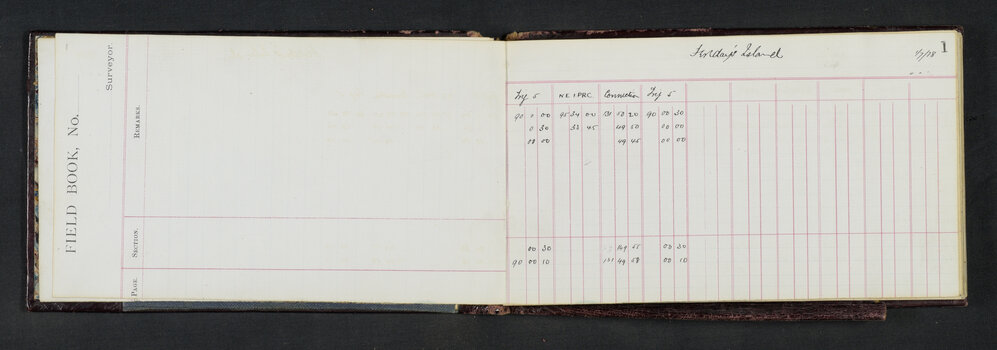 FIELD BOOK, No.
Surveyor.
REMARKS.
SECTION.
PAGE.
Island 1/7/18 1
Trig 5 NE 1 PRC Connection Trig 5
90 0 00 95 34 00 131 50 20 90 00 30
0 30 33 45 49 50 00 00
00 00 49 45 00 00
00 30 149 55 00 30
90 00 10 131 49 58 00 10